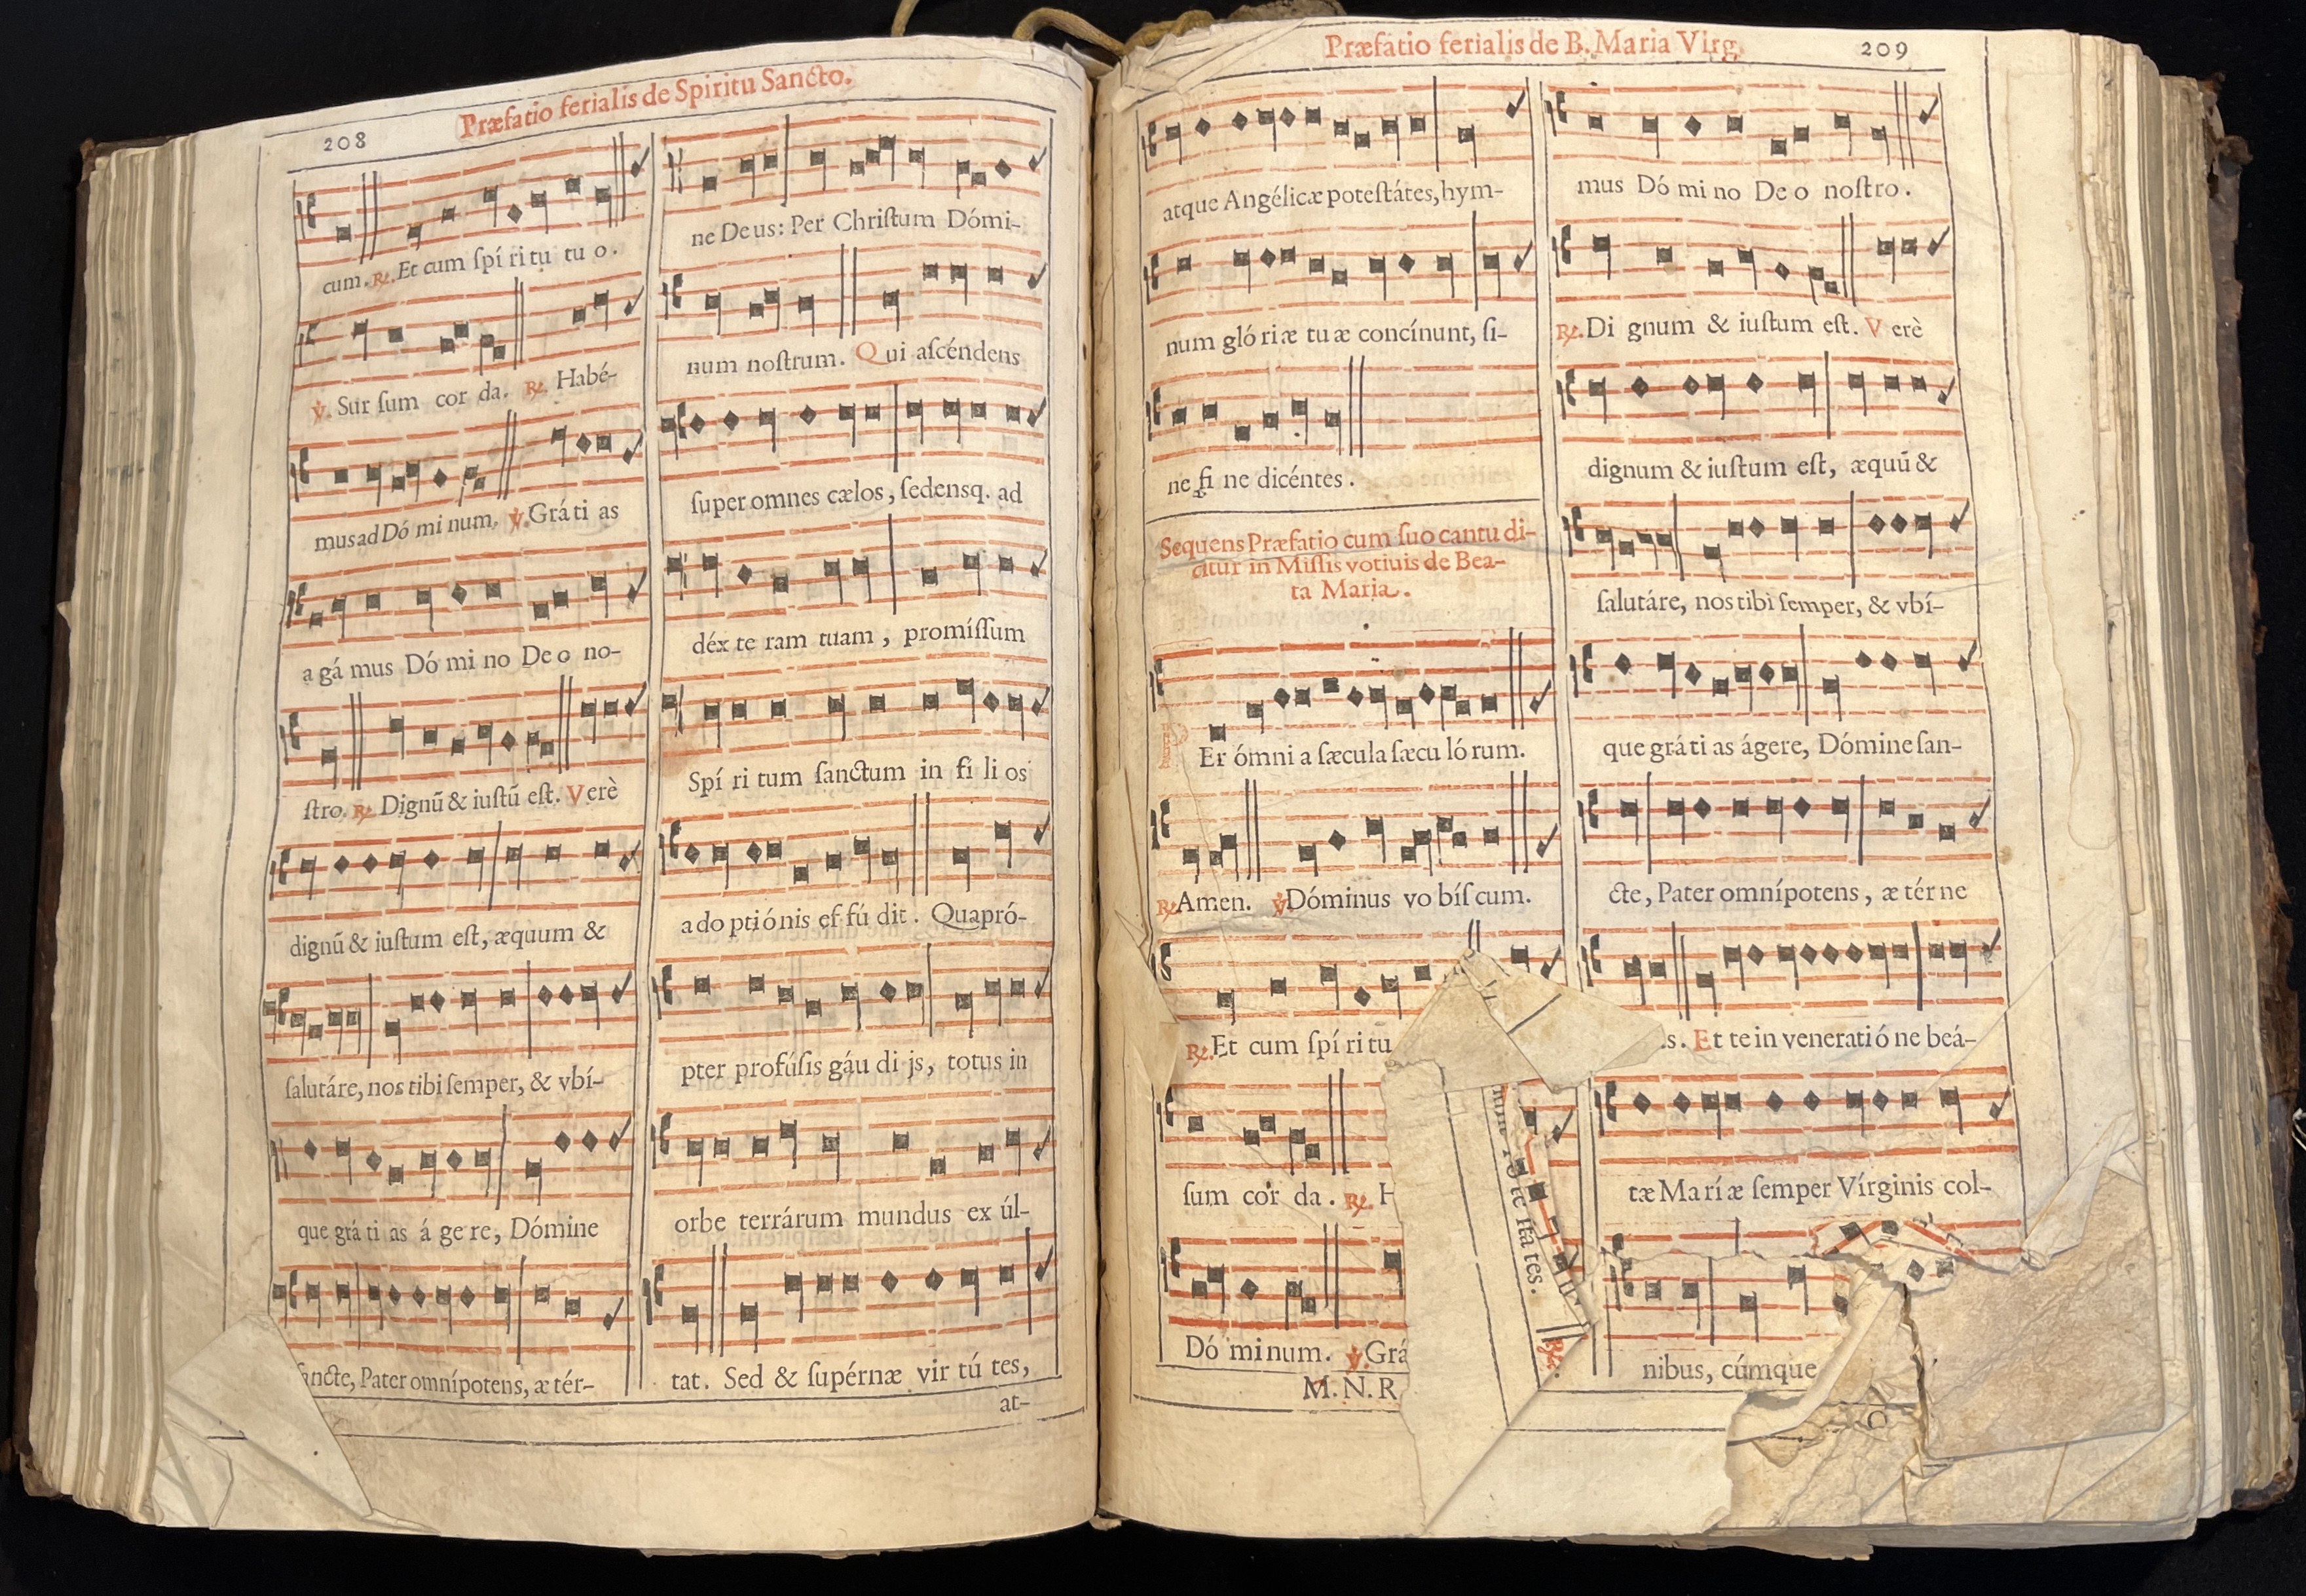 208
Præfatio ferialis de Spiritu Sancto.
cum. ℟. Et cum ſpí ri tu tu o.
℣. Sur ſum cor da. ℟. Habé-
mus ad Dó mi num. ℣. Grá ti as
a gá mus Dó mi no De o no-
ſtro. ℟. Dignũ & iuſtũ eſt. Verè
dignũ & iuſtum eſt, æquum &
ſalutáre, nos tibi ſemper, & vbí-
que grá ti as á ge re, Dómine
ancte, Pater omnípotens, æ tér-
ne De us: Per Chriſtum Dómi-
num noſtrum. Qui aſcéndens
ſuper omnes cælos, ſedensq. ad
déx te ram tuam, promíſſum
Spí ri tum ſanctum in fi li os
ado ptiónis ef fú dit. Quapró-
pter profúſis gáu di js, totus in
orbe terrárum mundus ex úl-
tat. Sed & ſupérnæ vir tú tes,
at-
Præfatio ferialis de B. Maria Virg.
209
atque Angélicæ poteſtátes, hym-
num gló riæ tu æ concínunt, ſi-
ne fi ne dicéntes.
Sequens Præfatio cum ſuo cantu di-
citur in Miſſis votiuis de Bea-
ta Maria.
Er ómni a ſæcula ſæcu ló rum.
℟. Amen. ℣. Dóminus vo bíſ cum.
℟. Et cum ſpí ri tu
ſum cor da. ℟. H
Dó mi num. ℣. Grá
M. N. R.
te ſta tes.
℟.
mus Dó mi no De o noſtro.
℟. Di gnum & iuſtum eſt. Verè
dignum & iuſtum eſt, æquũ &
ſalutáre, nos tibi ſemper, & vbí-
que grá ti as ágere, Dómine ſan-
cte, Pater omnípotens, æ tér ne
s. Et te in veneratió ne beá-
tæ Marí æ ſemper Vírginis col-
nibus, cúmque